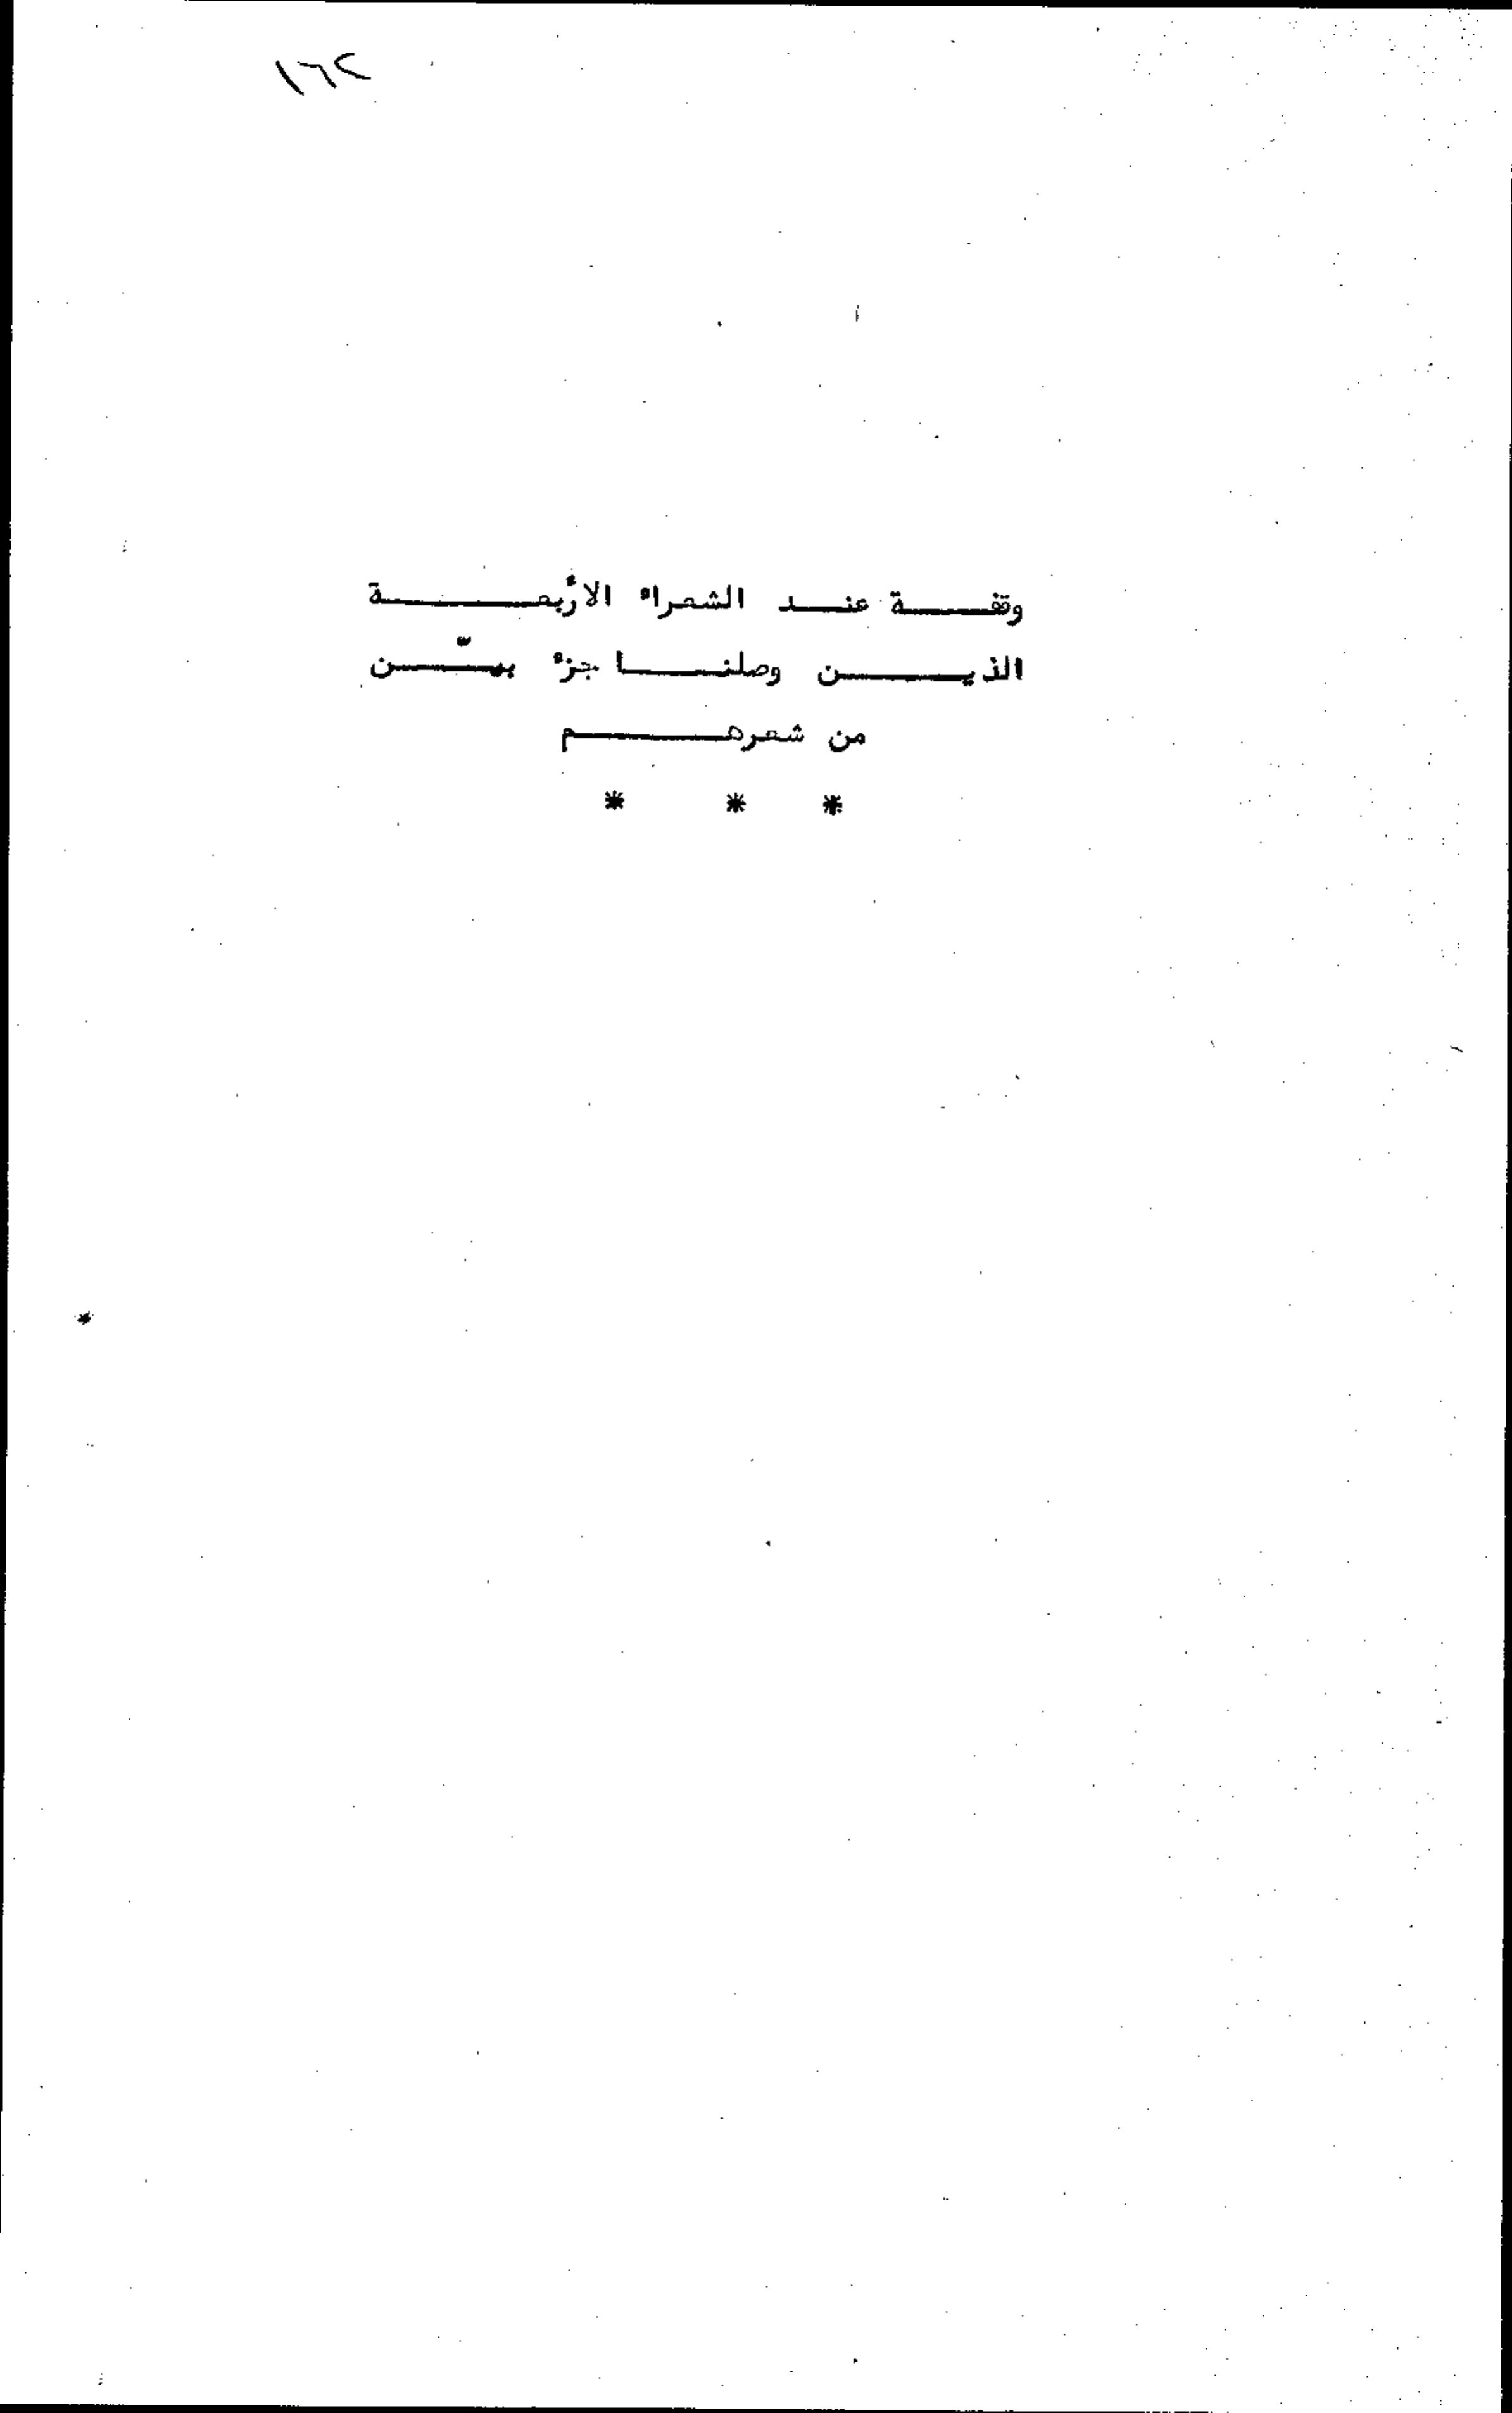 ١٦٢
وقفة عند الشعراء الأربعة
الذين وصلنا جزء بيّن
من شعرهم
* * *